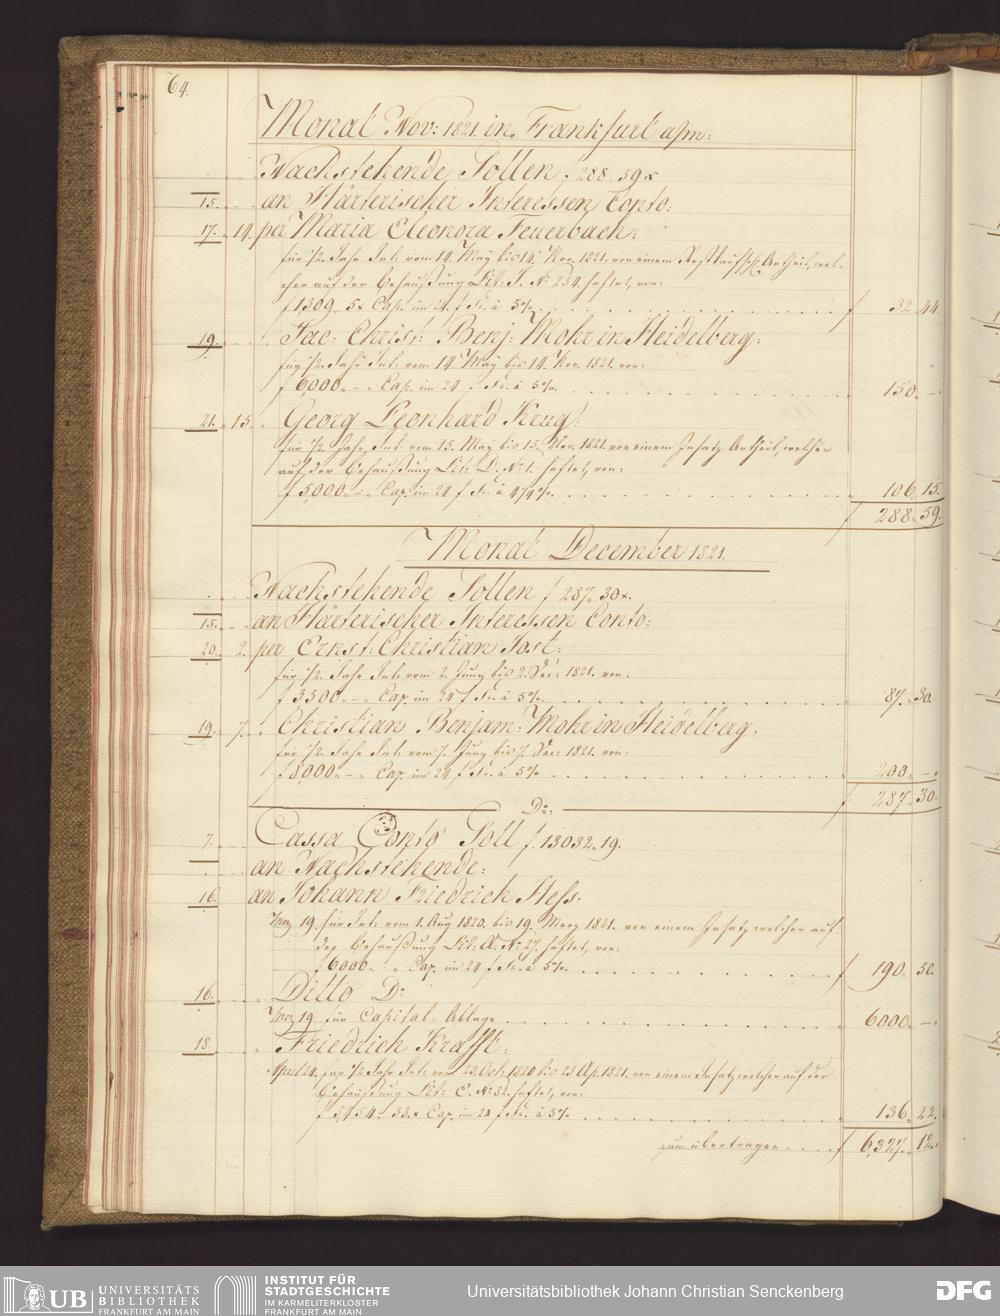 64.
Monat Nov: 1821. in Frankfurt a/m:
Nachstehende Sollen f 288 59 x
15. an Härterischer Interessen Conto:
17. 14. per Maria Eleonora Feuerbach:
für 1/2 Jahr Int: vom 14. May bis 14. Nov. 1821. von einem Antheil, wel-
cher auf der Behaußung Lit: J. No 254. haftet, von:
f 1309. 5 x Cap. im 24 f fs. à 5% f 32. 44.
19. Jac: Christ: Benj: Mohr in Heidelberg:
für 1/2 Jahr Int: vom 14. May bis 14. Nov. 1821. von:
f 6000. – Cap. im 24 f fs. à 5% 150. –
21. 15. Georg Leonhard Krug:
für 1/2 Jahr Int: vom 15. May bis 15. Nov. 1821. von einem Insatz Antheil, welcher
auf der Behaußung Lit: D. No 1. haftet, von:
f 5,000. – Cap. im 24 f fs. à 4 1/4 % 106. 15.
f 288. 59.
Monat December 1821.
Nachstehende Sollen f 287. 30 x.
15. an Härterischer Interessen Conto:
20. 2. per Ernst: Christian Jost:
für 1/2 Jahr Int: vom 2. Juny bis 2. Dec: 1821. von:
f 3500. – Cap. im 24 f fs. à 5% 87. 30.
19. 7. Christian Benjam: Mohr in Heidelberg:
für 1/2 Jahr Int: vom 7. Juny bis 7. Dec: 1821. von:
f 8,000. – Cap. im 24 f fs. à 5% 200. –
f 287. 30.
Do:
7. Cassa Conto Soll f. 13032. 19.
an Nachstehende:
16. an Johann Friedrich Heß:
Merz 19. für Int: vom 1. Aug 1820. bis 19. Merz 1821. von einem Insatz welcher auf
der Behaußung Lit: A. No 27. haftet, von:
f 6000. – Cap. im 24 f fs. à 5% f 190. 50.
16. Ditto Do
Merz 19 für Capital Ablage 6000. –
18. Friedrich Krafft:
April 24. für 1/2 Jahr Int: vom 23 Oct: 1820 bis 23 Ap. 1821. von einem Insatz welcher auf der
Behaußung Lit: C. No 82. haftet, von:
f 5,454. 33. x Cap. im 24 f fs. à 5% 136. 22.
zum übertragen f 6,327. 12.
UB UNIVERSITÄTS
BIBLIOTHEK
FRANKFURT AM MAIN
INSTITUT FÜR
STADTGESCHICHTE
IM KARMELITERKLOSTER
FRANKFURT AM MAIN
Universitätsbibliothek Johann Christian Senckenberg
DFG